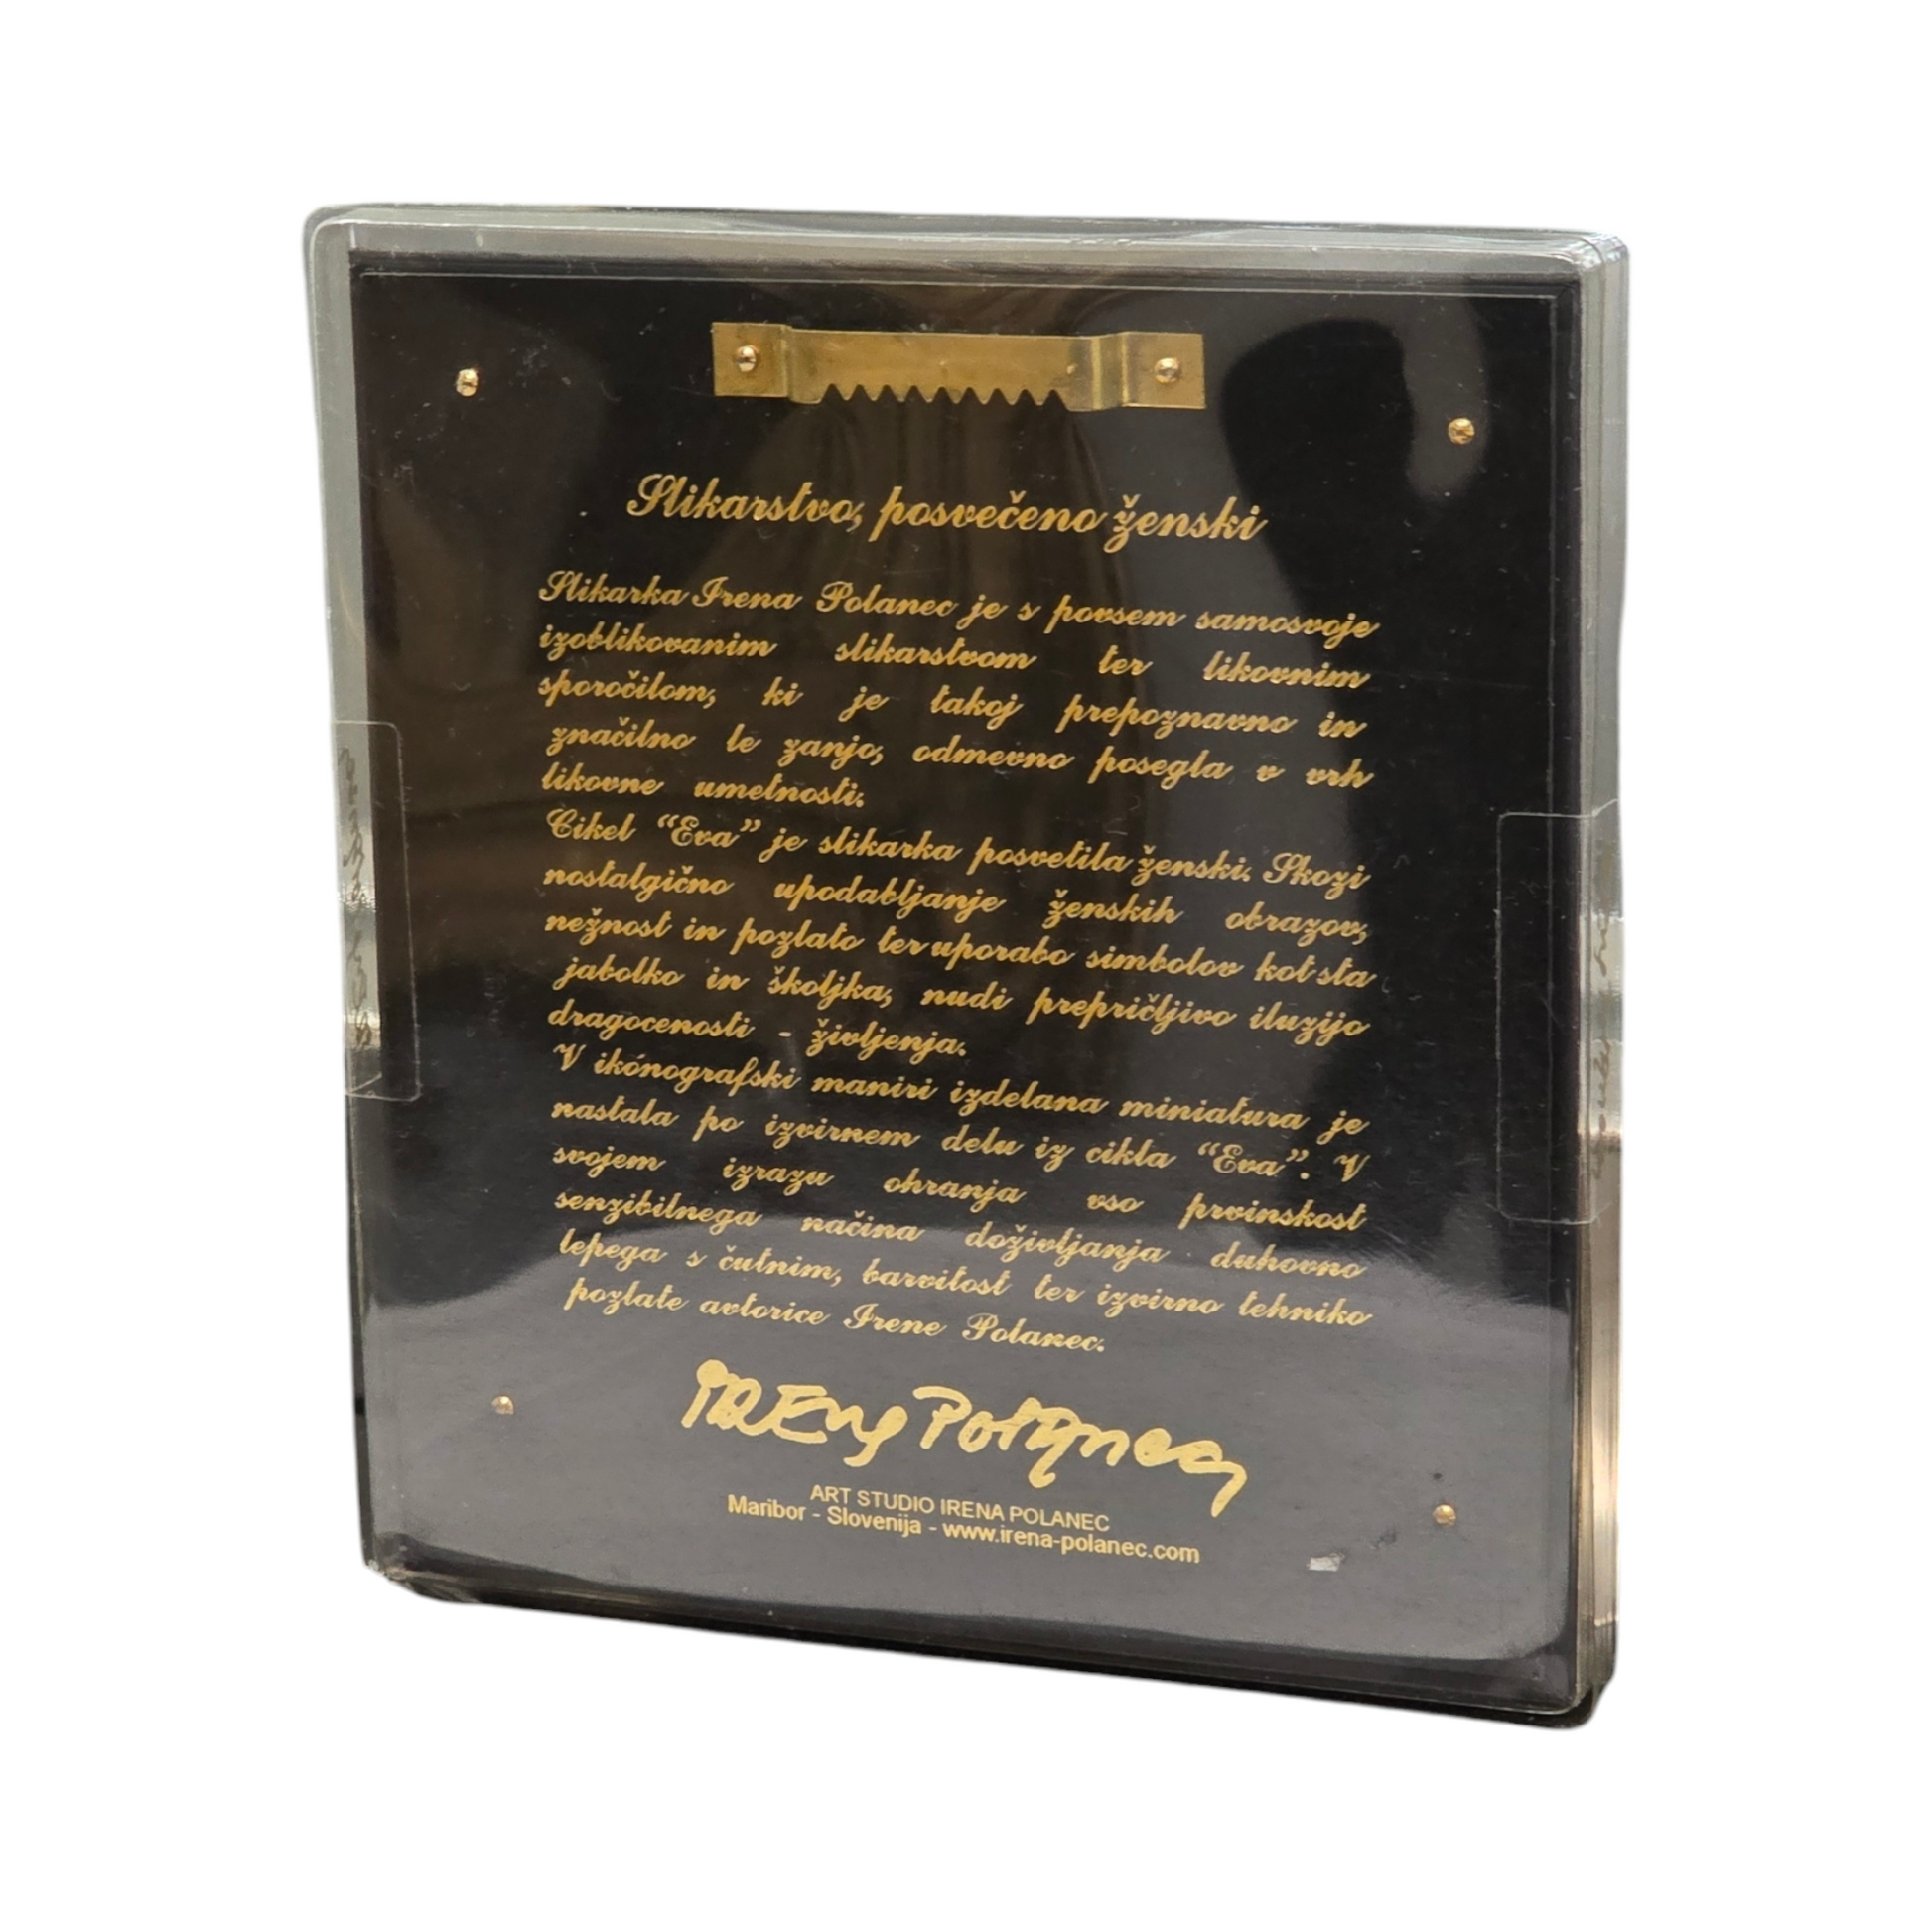 Slikarstvo, posvečeno ženski
Slikarka Irena Polanec je s povsem samosvoje
izoblikovanim slikarstvom ter likovnim
sporočilom, ki je takoj prepoznavno in
značilno le zanjo, odmevno posegla v vrh
likovne umetnosti.
Cikel “Eva” je slikarka posvetila ženski. Skozi
nostalgično upodabljanje ženskih obrazov,
nežnost in pozlato ter uporabo simbolov kot sta
jabolko in školjka, nudi prepričljivo iluzijo
dragocenosti - življenja.
V ikonografski maniri izdelana miniatura je
nastala po izvirnem delu iz cikla “Eva”. V
svojem izrazu ohranja vso prvinskost
senzibilnega načina doživljanja duhovno
lepega s čutnim, barvitost ter izvirno tehniko
pozlate avtorice Irene Polanec.
IRENA Polanec
ART STUDIO IRENA POLANEC
Maribor - Slovenija - www.irena-polanec.com